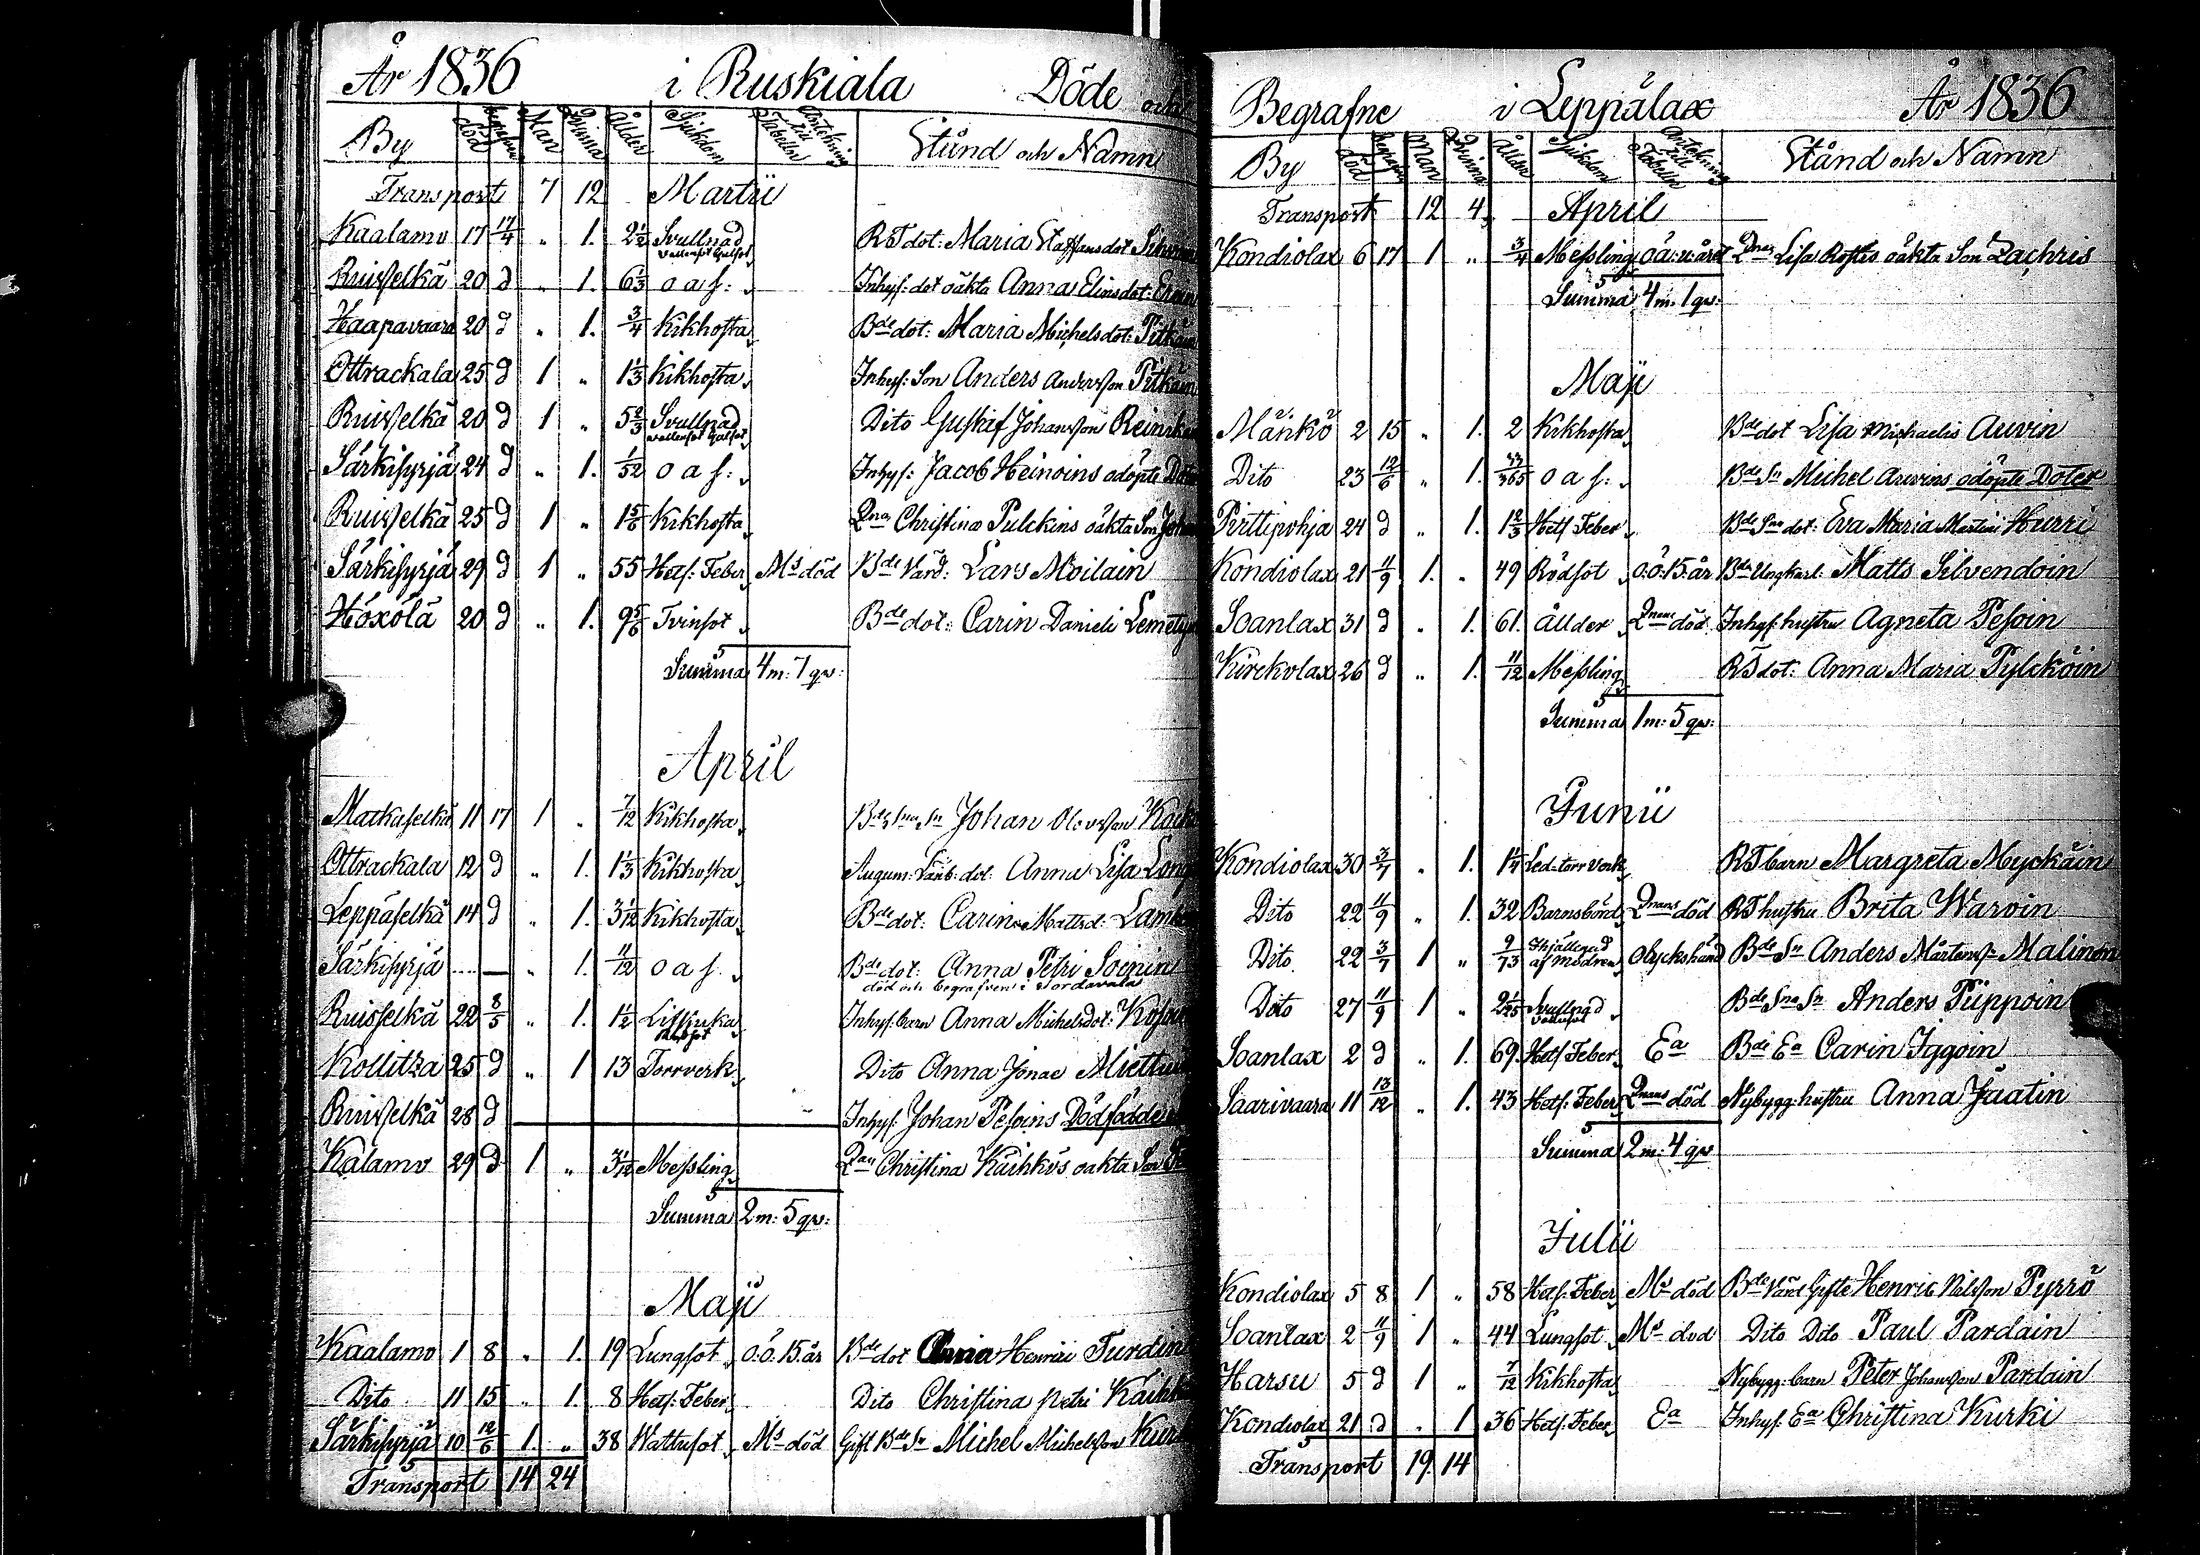 År 1836 i Ruskiala Döde
By död begrafven Man Qvinna Ålder Sjukdom Antekning till Tabeller Stånd och Namn
Transport 7 12 Martii
Kaalamo 17 17/4 " 1. 2 1/2 Svullnad RT dot: Maria Staffansdot
Ruisselkä 20 d " 1. 6 1/3 o a s: Inhys: dot oäkta Anna Elinsdot:
Haapavaara 20 d " 1. 3/4 Kikhosta Bde dot: Maria Michelsdot:
Ottrackala 25 d 1 " 1 1/3 Kikhosta Inhys: Son Anders Andersson
Ruisselkä 20 d 1 " 5 2/3 Svullnad Dito Gustaf Johansson
Särkisyrjä 24 d " 1. 1/52 o a s: Inhys: Jacob Heinoins odöpte
Ruisselkä 25 d 1 " 1 5/6 Kikhosta Qna Christinæ Pulckins oäkta Son
Särkisyrjä 29 d 1 " 55 Hets: Feber Ms död Bde Värd: Lars Moilain
Höxölä 20 d " 1. 9 5/6 Tvinsot Bde dot: Carin Danieli
Summa 4 m: 7 qv:
April
Matkaselkä 11 17 1 " 7/12 Kikhosta Johan Olovsson
Ottrackala 12 d " 1. 1 1/3 Kikhosta dot: Anna Lisa
Leppäselkä 14 d " 1. 3 1/12 Kikhosta Bde dot: Carin Mattsd:
Särkisyrjä " 1. 11/12 o a s. Bde dot: Anna Petri Soinin
död och begrafven i Sordavala
Ruisselkä 22 8/5 " 1. 1 1/2 Inhys: barn Anna Michelsdot:
Kollitza 25 d " 1 13 Torrverk Dito Anna Jonae
Ruisselkä 28 d Inhys: Johan Pesoins Dödfödde
Kalamo 29 d 1 " 3 1/12 Messling Christina Käihkös oäkta Son
Summa 2 m: 5 qv:
Maji
Kaalamo 1 8 " 1. 19 Lungsot o: ö: 15. år Bde dot Henrici
Dito 11 15 " 1. 8 Hets: Feber Dito Christina Petri
Särkisyrjä 10 12/6 1. " 38 Wattusot Ms död Gift Bde Sn Michel Michelsson
Transport 14 24
Begrafne i Leppälax År 1836
By död begrafven Man Qvinna Ålder Sjukdom Antekning till Tabeller Stånd och Namn
Transport 12 4 April
Kondiolax 6 17 1 " 3/4 Messling Lisa oäkta Son Zachris
Summa 4 m: 1 qv:
Maji
Mänkö 2 15 " 1. 2 Kikhosta Bde dot Lisa Michaelis Auvin
Dito 23 12/6 " 1. o a s: Bde Sn Michel Auvins odöpte Doter
Pirttipohja 24 d " 1. 1 2/3 Hets Feber Bde dot: Eva Maria Martini Hurri
Kondiolax 21 11/9 1. " 49 Rödsot o: ö: 15. år Bde Ungkarl: Matts Silvendoin
Soanlax 31 d " 1. 61. Ålder död Inhys: hustru Agneta Pesoin
Kirckolax 26 d " 1. 11/12 Messling RT dot: Anna Maria Pylcköin
Summa 1 m: 5 qv:
Junii
Kondiolax 30 3/7 " 1. 1 1/4 Led-torrverk RT barn Margreta Myckäin
Dito 22 11/9 " 1. 32 Barnsbörd död RT hustru Brita Warvin
Dito 22 3/7 1 " 9/73 af modren Olyckshänd Bde Sn Anders Mårtenss: Malinon
Dito 27 11/9 1 " Svullnad Anders Piippoin
Soanlax 2 d " 1. 69. Hets Feber Ea Bde Ea Carin Iggoin
Saarivaara 11 13/12 " 1. 43 Hets: Feber död Nybygg: hustru Anna Jäätin
Summa 2 m: 4 qv
Julii
Kondiolax 5 8 1 " 58 Hets: Feber Ms död Bde Värd Gifte Henric Nilsson Pyrrö
Soanlax 2 11/9 1 " 44 Lungsot Ms död Dito Dito Paul Pardain
Harsu 5 d 1 " 7/12 Kikhosta Nybygg: barn Peter Johansson Pardain
Kondiolax 21 d " 1 36 Hets: Feber Ea Inhys: Ea Christina Kurki
Transport 19 14